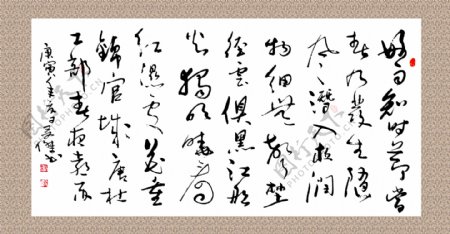 好雨知時節當
春乃發生隨
風潛入夜潤
物細無聲野
徑雲俱黑江船
火獨明曉看
紅濕處花重
錦官城唐杜
工部春夜喜雨
庚寅年